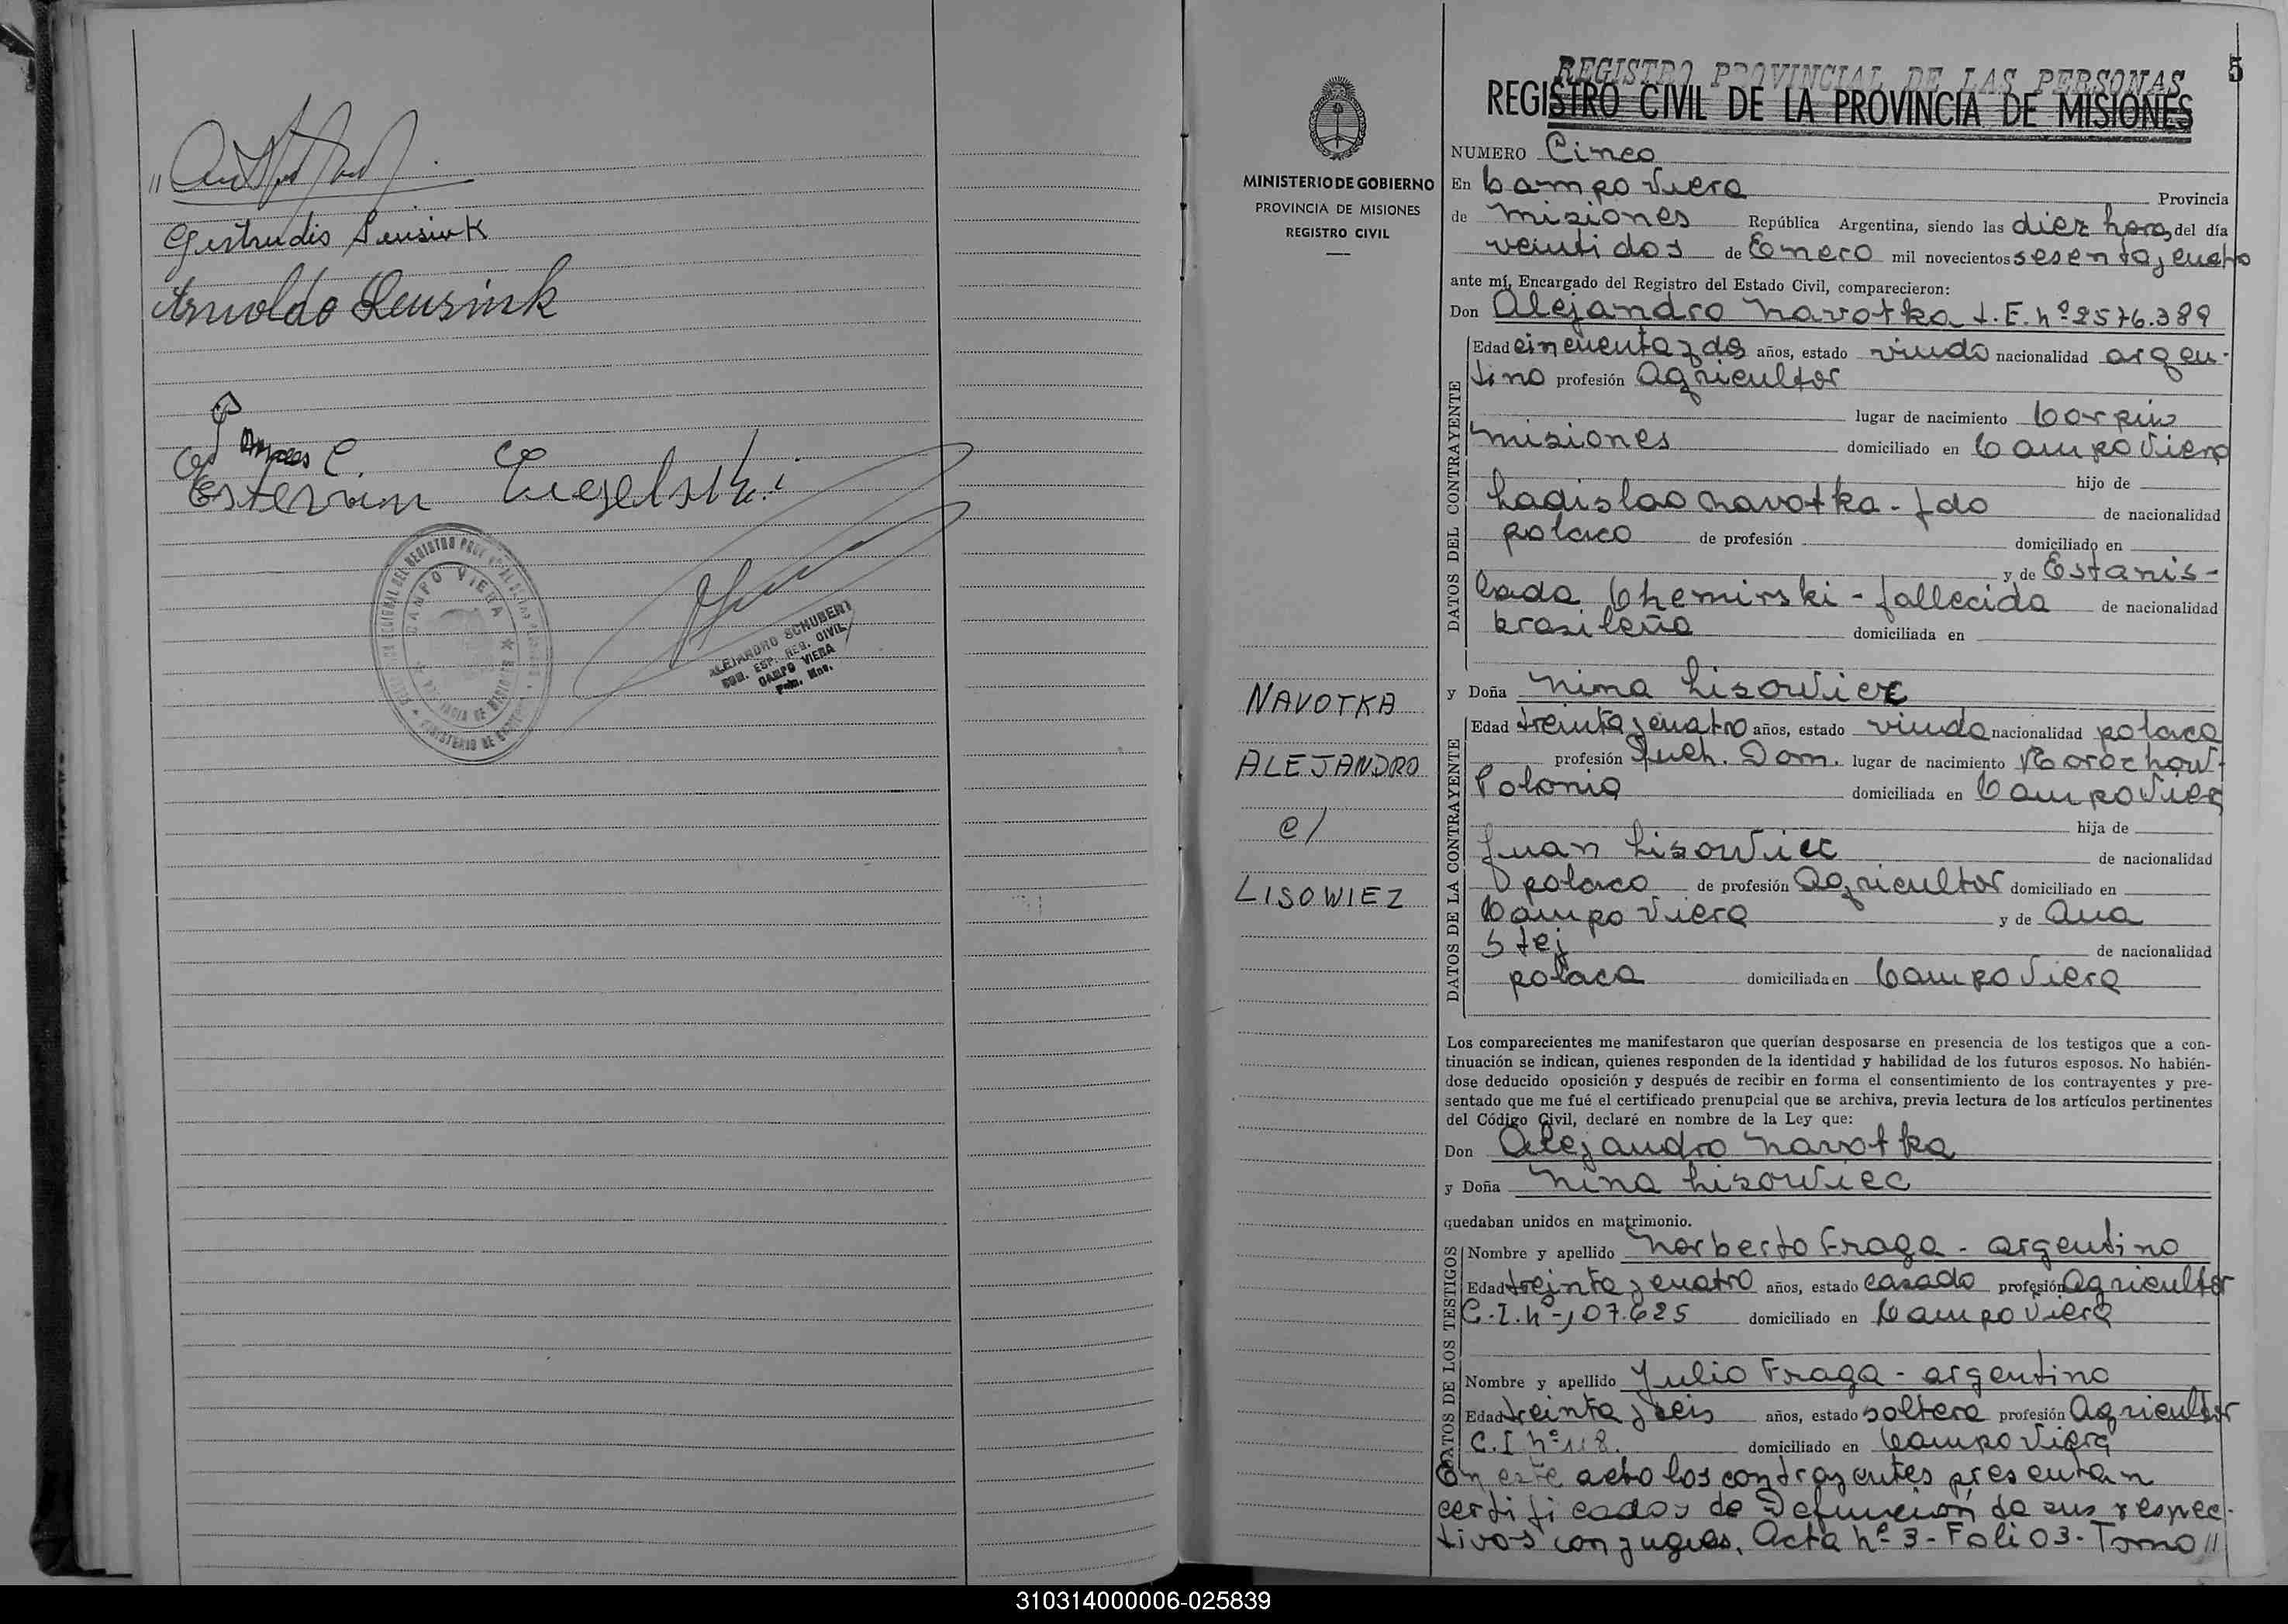 Gertrudis Leusink
Arnoldo Leusink
Estevan
CAMPO VIERA
ALEJANDRO SCHUBERT
ESP. REG. CIVIL
CAMPO VIERA
5
REGISTRO PROVINCIAL DE LAS PERSONAS
REGISTRO CIVIL DE LA PROVINCIA DE MISIONES
MINISTERIO DE GOBIERNO
PROVINCIA DE MISIONES
REGISTRO CIVIL
NAVOTKA
ALEJANDRO
c/
LISOWIEZ
NUMERO Cinco
En Campo Viera Provincia
de Misiones República Argentina, siendo las diez horas del día
veintidos de Enero mil novecientos sesenta y cuatro
ante mí, Encargado del Registro del Estado Civil, comparecieron:
DATOS DEL CONTRAYENTE
Don Alejandro Navotka L.E. nº 2576.389
Edad cincuenta y dos años, estado viudo nacionalidad argen-
tino profesión Agricultor
lugar de nacimiento Corpus
Misiones domiciliado en Campo Viera
hijo de
Ladislao Navotka - fdo de nacionalidad
polaco de profesión domiciliado en
y de Estanis-
lada Chemirski - fallecida de nacionalidad
brasileña domiciliada en
DATOS DE LA CONTRAYENTE
y Doña Nina Lisowiec
Edad treinta y cuatro años, estado viuda nacionalidad polaca
profesión Queh. Dom. lugar de nacimiento
Polonia domiciliada en Campo Viera
hija de
Juan Lisowiec de nacionalidad
polaco de profesión Agricultor domiciliado en
Campo Viera y de Ana
Stej de nacionalidad
polaca domiciliada en Campo Viera
Los comparecientes me manifestaron que querían desposarse en presencia de los testigos que a con-
tinuación se indican, quienes responden de la identidad y habilidad de los futuros esposos. No habién-
dose deducido oposición y después de recibir en forma el consentimiento de los contrayentes y pre-
sentado que me fué el certificado prenupcial que se archiva, previa lectura de los artículos pertinentes
del Código Civil, declaré en nombre de la Ley que:
Don Alejandro Navotka
y Doña Nina Lisowiec
quedaban unidos en matrimonio.
DATOS DE LOS TESTIGOS
Nombre y apellido Norberto Fraga - argentino
Edad treinta y cuatro años, estado casado profesión Agricultor
C.I. nº 107.625 domiciliado en Campo Viera
Nombre y apellido Julio Fraga - argentino
Edad treinta y seis años, estado soltero profesión Agricultor
C.I nº 118. domiciliado en Campo Viera
En este acto los contrayentes presentan
certificados de Defunción de sus respec-
tivos conyuges, Acta nº 3 - Folio 3 - Tomo //
310314000006-025839